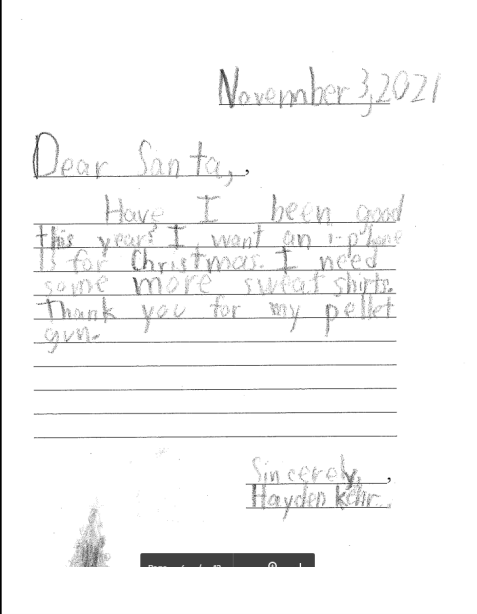 November 3, 2021
Dear Santa,,
Have I been good
this year? I want an i-phone
13 for Christmas. I need
some more sweat shirts.
Thank you for my pellet
gun.
Sincerely,,
Hayden Kehr